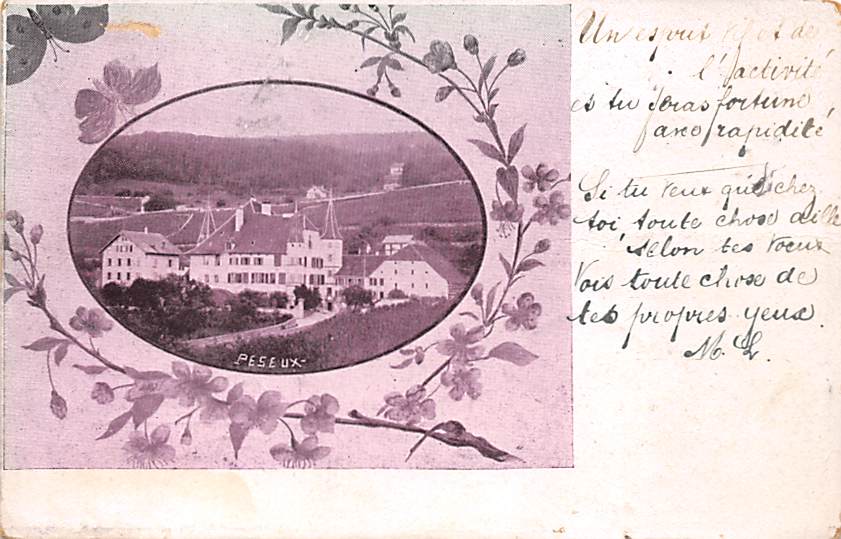 PESEUX
Un esprit vif et de
l'activité
et tu feras fortune
avec rapidité
Si tu veux que chez
toi toute chose aille
selon tes voeux
Vois toute chose de
tes propres yeux.
M. L.